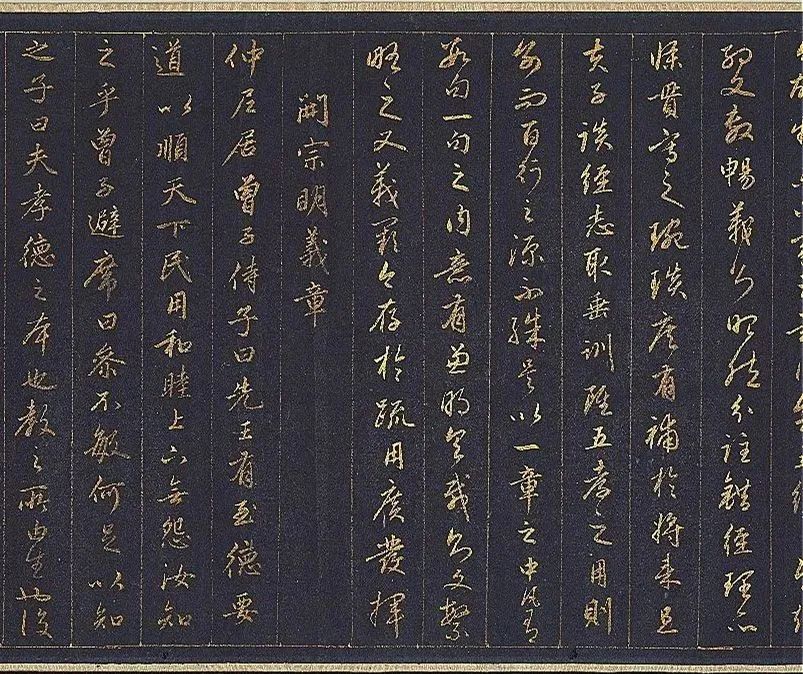 約文敷暢義則昭然分註錯經理亦
條貫寫之琬琰庶有補於將來且
夫子談經志取垂訓雖五孝之用則
別而百行之源不殊是以一章之中凡有
數句一句之內意有兼明具載則文繁
略之又義闕今存於疏用廣發揮
開宗明義章
仲尼居曾子侍子曰先王有至德要
道以順天下民用和睦上下無怨汝知
之乎曾子避席曰參不敏何足以知
之子曰夫孝德之本也教之所由生也復